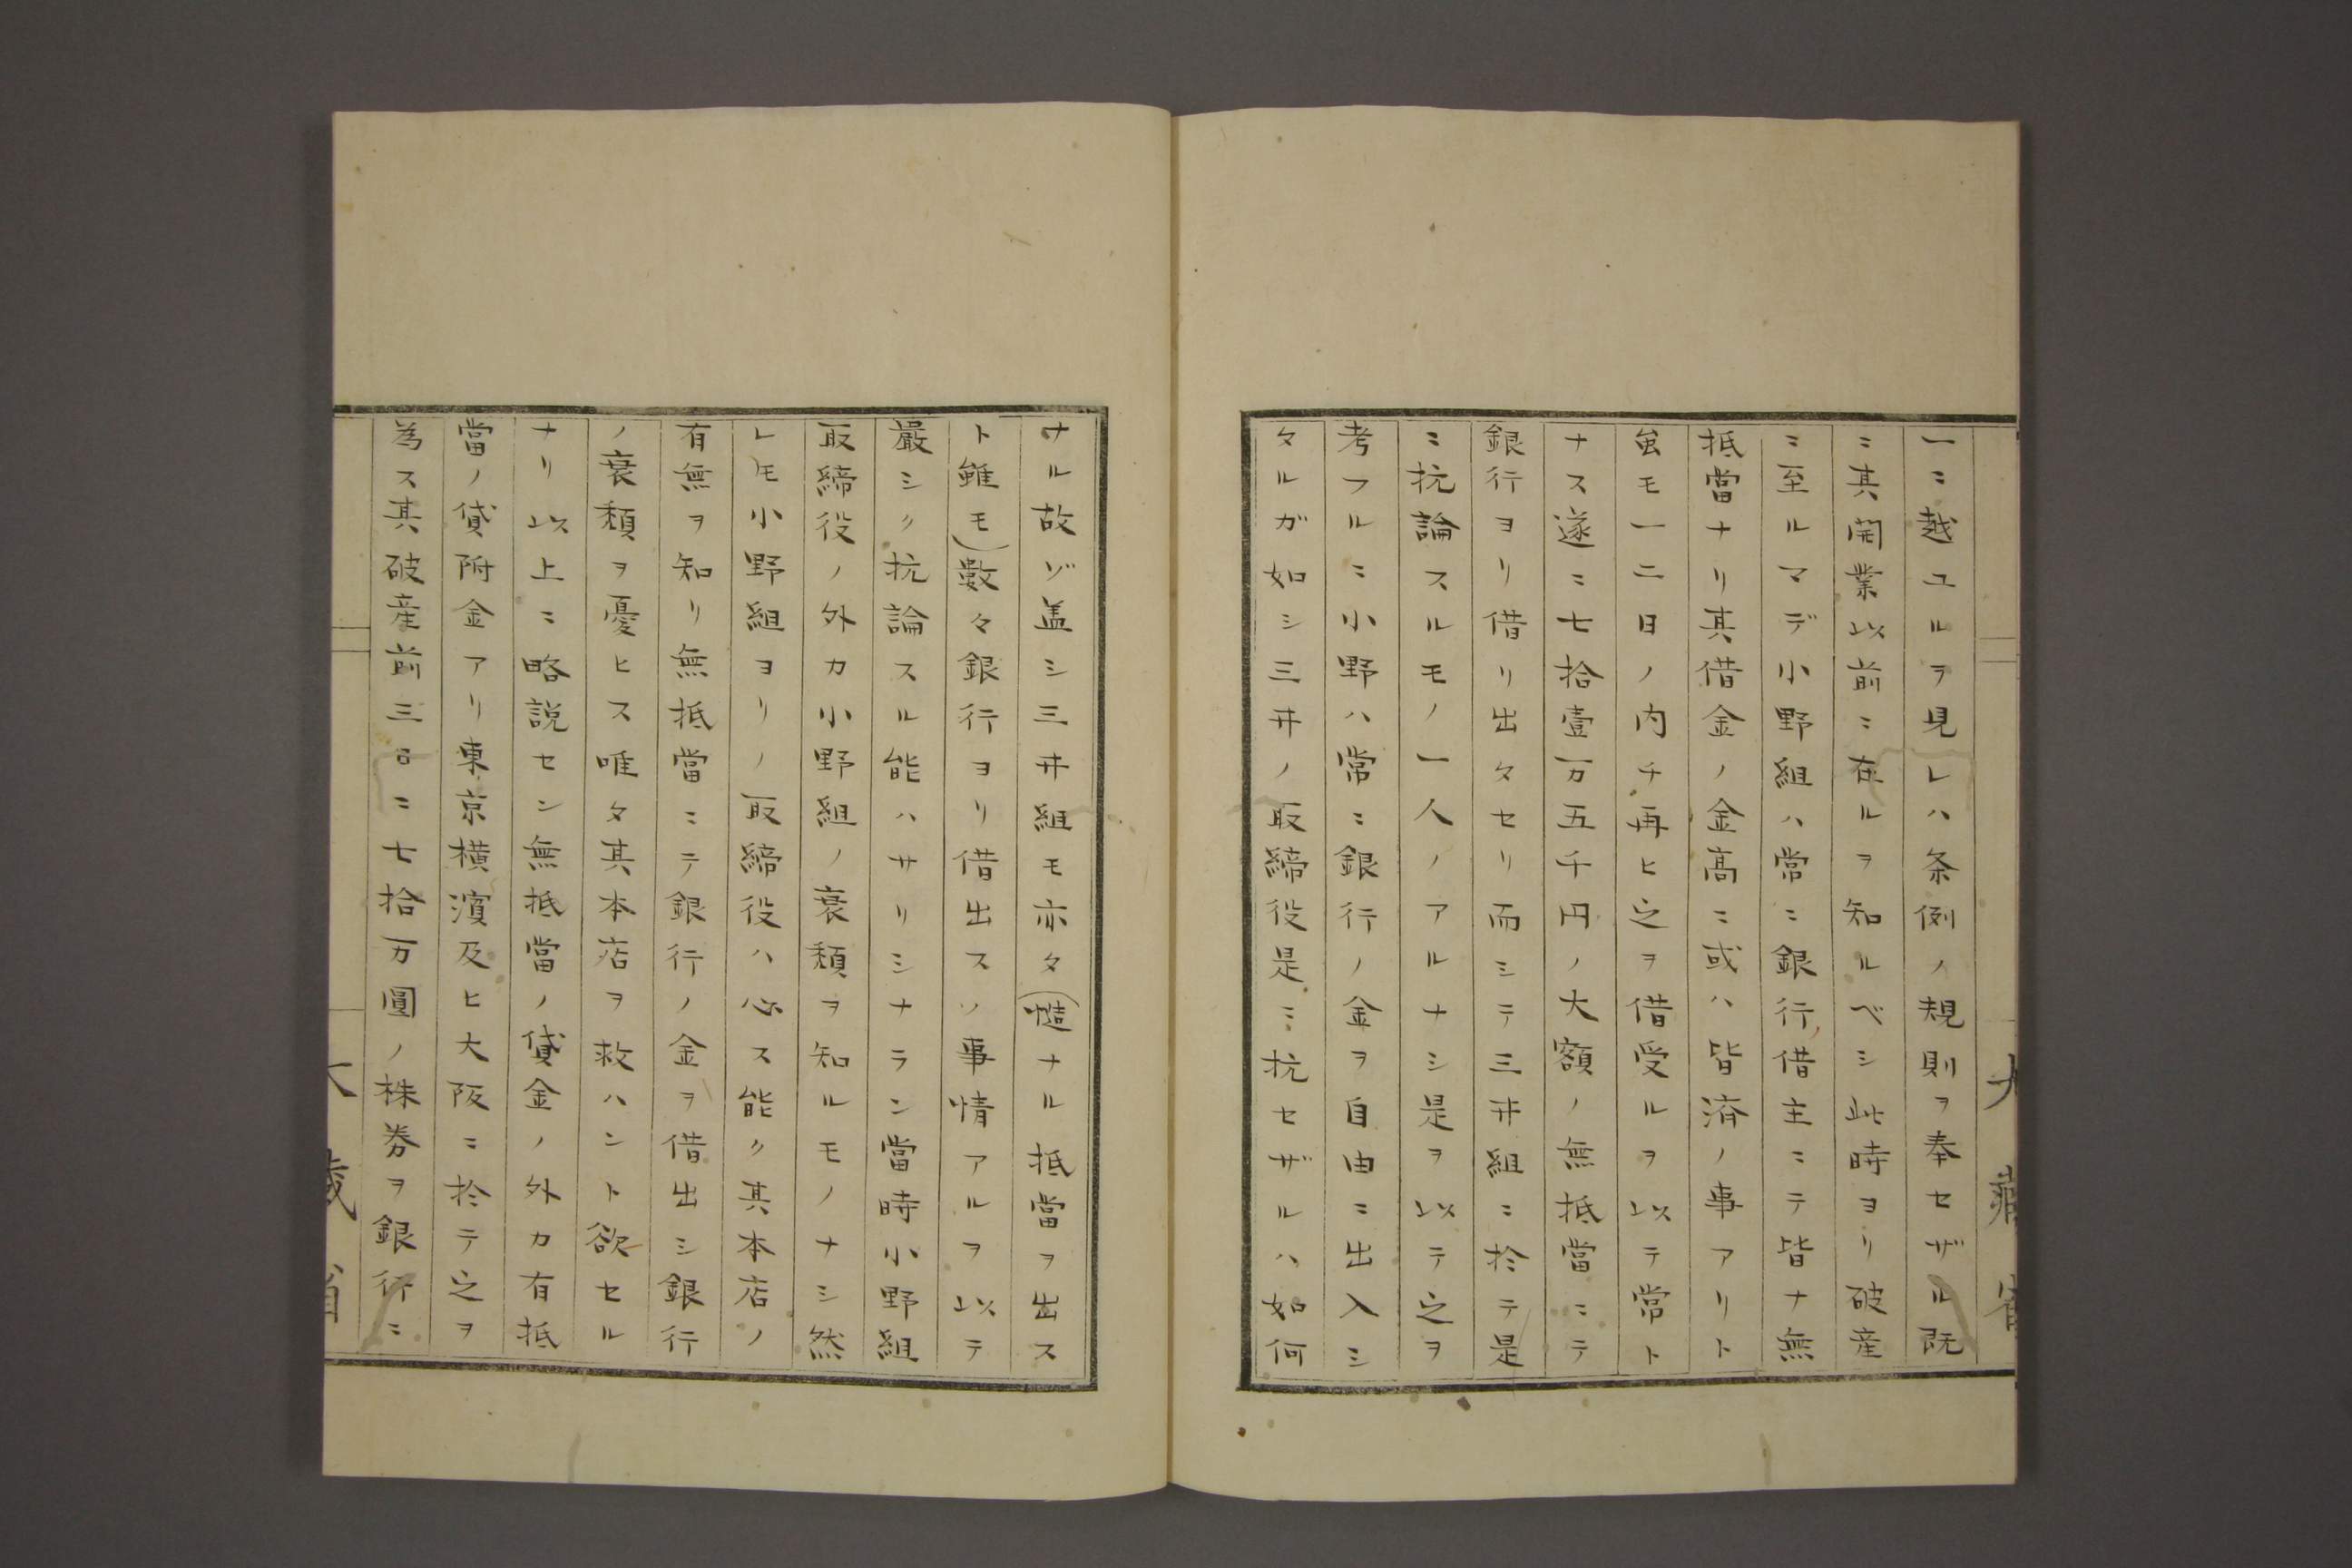 一ニ越ユルヲ見レハ条例ノ規則ヲ奉セザル既
ニ其開業以前ニ在ルヲ知ルベシ此時ヨリ破産
ニ至ルマデ小野組ハ常ニ銀行借主ニテ皆ナ無
抵當ナリ其借金ノ金高ニ或ハ皆済ノ事アリト
虽モ一二日ノ内チ再ヒ之ヲ借受ルヲ以テ常ト
ナス遂ニ七拾壹万五千円ノ大額ノ無抵當ニテ
銀行ヨリ借リ出タセリ而シテ三井組ニ於テ是
ニ抗論スルモノ一人ノアルナシ是ヲ以テ之ヲ
考フルニ小野ハ常ニ銀行ノ金ヲ自由ニ出入シ
タルガ如シ三井ノ取締役是ニ抗セザルハ如何
ナル故ゾ盖シ三井組モ亦タ(慥ナル抵當ヲ出ス
ト雖モ)數々銀行ヨリ借出スノ事情アルヲ以テ
嚴シク抗論スル能ハサリシナラン當時小野組
取締役ノ外カ小野組ノ衰頽ヲ知ルモノナシ然
レモ小野組ヨリノ取締役ハ必ス能ク其本店ノ
有無ヲ知リ無抵當ニテ銀行ノ金ヲ借出シ銀行
ノ衰頽ヲ憂ヒス唯タ其本店ヲ救ハント欲セル
ナリ以上ニ略説セン無抵當ノ貸金ノ外カ有抵
當ノ貸附金アリ東京横濱及ヒ大阪ニ於テ之ヲ
為ス其破産前三日ニ七拾万圓ノ株券ヲ銀行ニ
大藏省